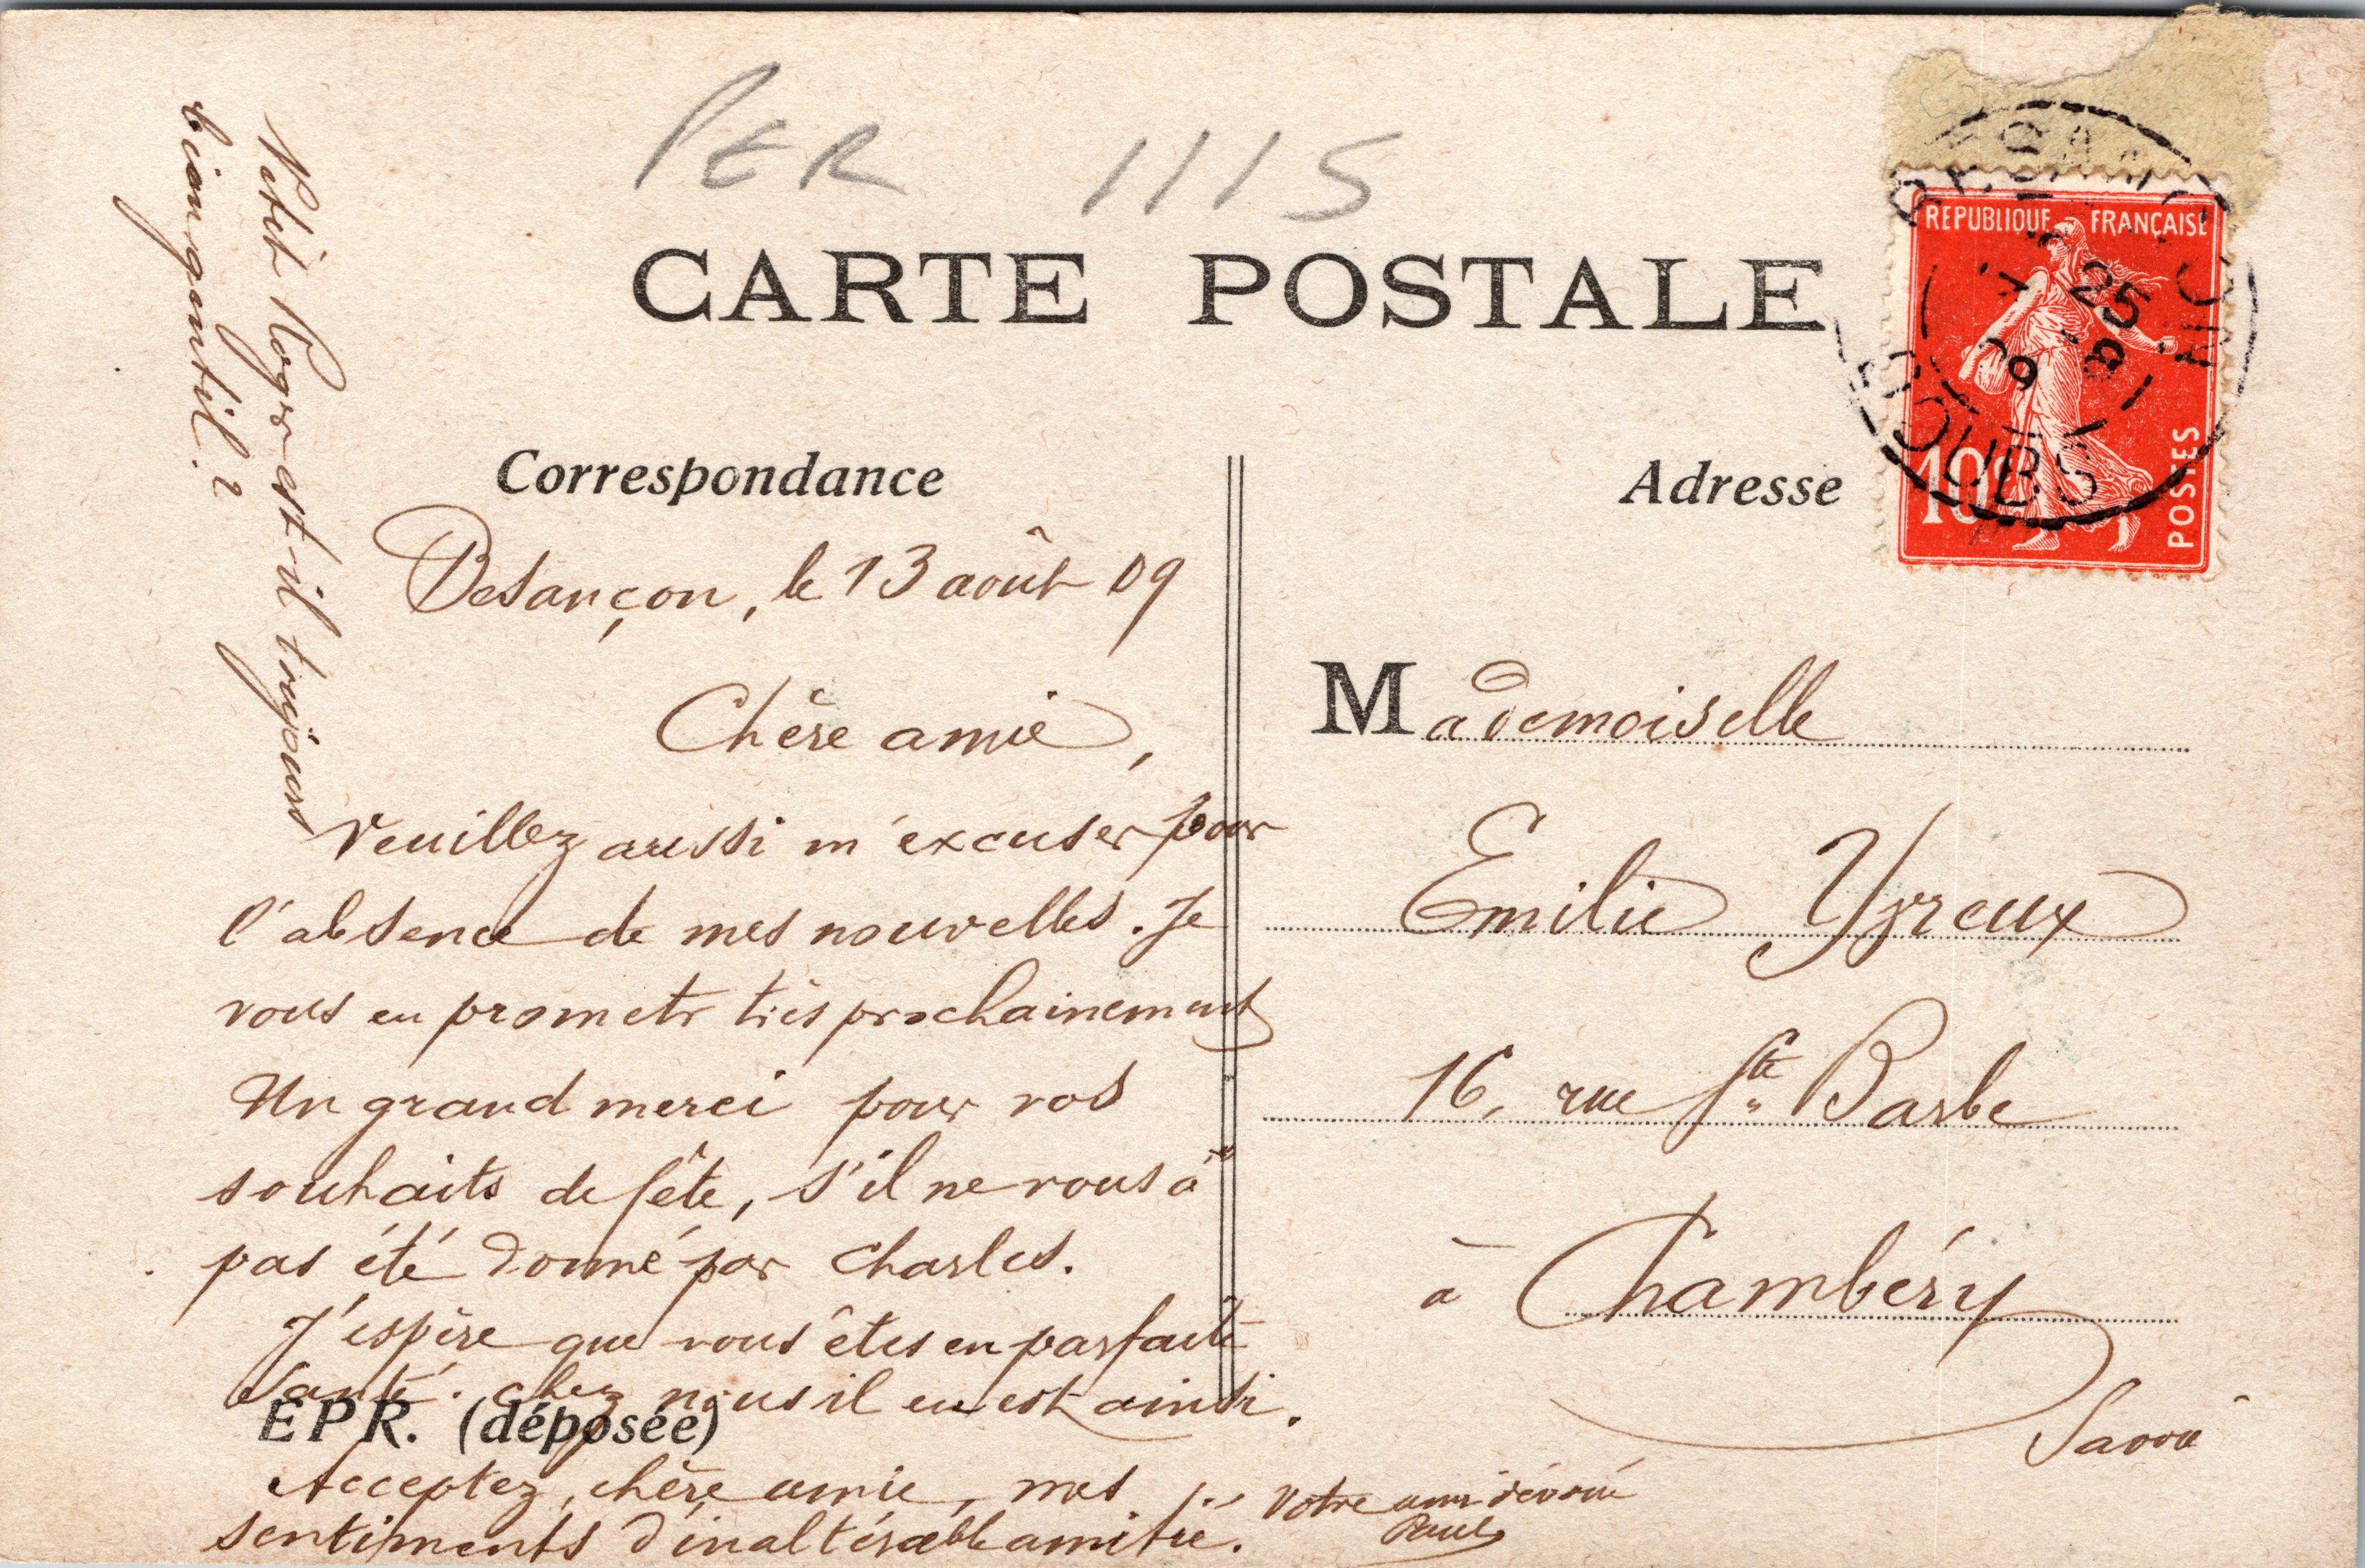 PER 1115
CARTE POSTALE
REPUBLIQUE FRANÇAISE
10c
POSTES
25
8
09
DOUBS
Correspondance
Besançon, le 13 août 09
Chère amie,
Veuillez aussi m'excuser pour
l'absence de mes nouvelles. Je
vous en promets très prochainement
Un grand merci pour vos
souhaits de fête, s'il ne vous à
pas été donné par Charles.
J'espère que vous êtes en parfaite
santé. chez nous il en est ainsi.
EPR. (déposée)
Acceptez, chère amie, mes
sentiments d'inaltérable amitié.
Votre ami dévoué
Paul
Petit Roger est-il toujours
bien gentil?
Adresse
Mademoiselle
Emilie
16, rue Ste Barbe
à Chambéry
Savoie